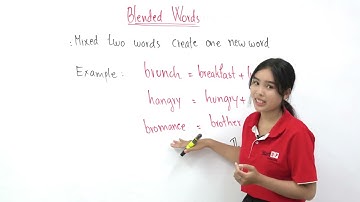 Blended Words
: Mixed two words create one new word
Example : brunch = breakfast +
hangry = hungry +
bromance = brother